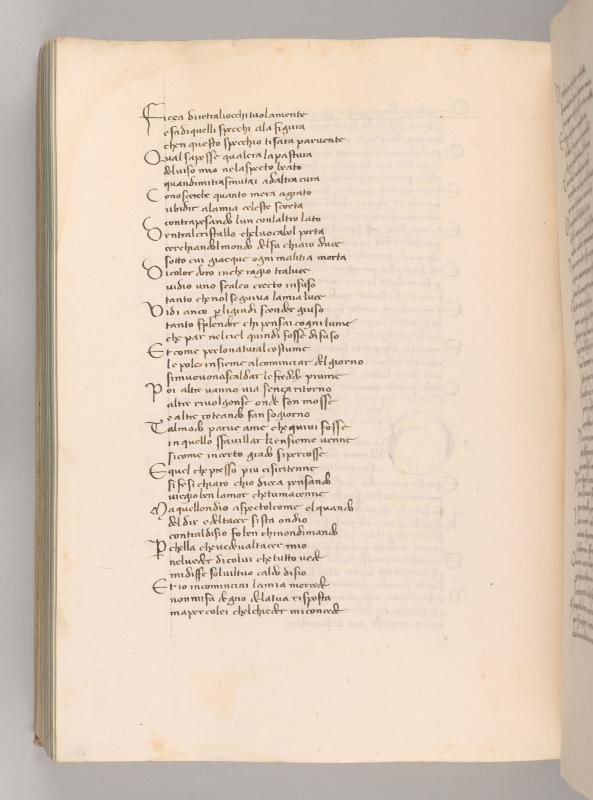 Ficca diretraliocchi tuolamente
e fa di quelli specchi ala figura
chen questo specchio tisara parvente
Qual sapesse qualera lapastura
del viso mio nelaspecto beato
quandimitrasmutai adaltra cura
Conoscerebe quanto mera agrato
ubidir alamia celeste scorta
contrapesando lun conlaltro lato
Dentralcristallo chelvocabol porta
cerchiandolmondo delsu chiaro duce
sotto cui giacque ogni malitia morta
Di color doro inche ragio traluce
vidio uno scaleo erecto insuso
tanto chenol seguiva lamia luce
Vidi anco perligradi scender giuso
tanto splendor chi pensai cogni lume
che par nelciel quindi fosse difuso
Et come perlonatural costume
le pole insieme alcominciar del giorno
simuovonoascaldar lefredde piume
Poi altre vanno via sença ritorno
altre rivolgonse onde son mosse
e altre roteando fan sogiorno
Talmodo parve ame che quivi fosse
in quello sfavillar kensieme venne
sicome incerto grado sipercosse
E quel chepresso piu cisiritenne
sifesi chiaro chio dicea pensando
iuegio ben lamor chetumacenne
Ma quellondio aspectolcome el quando
del dir e deltacer sista ondio
contraldisio fo ben chinondimando
Perchella chevedevaltacer mio
nelveder dicolui chetutto vede
midisse solviltuo caldo disio
Et io incominciai lamia mercede
nonmifa degno delatua risposta
ma per colei chelchieder miconcede